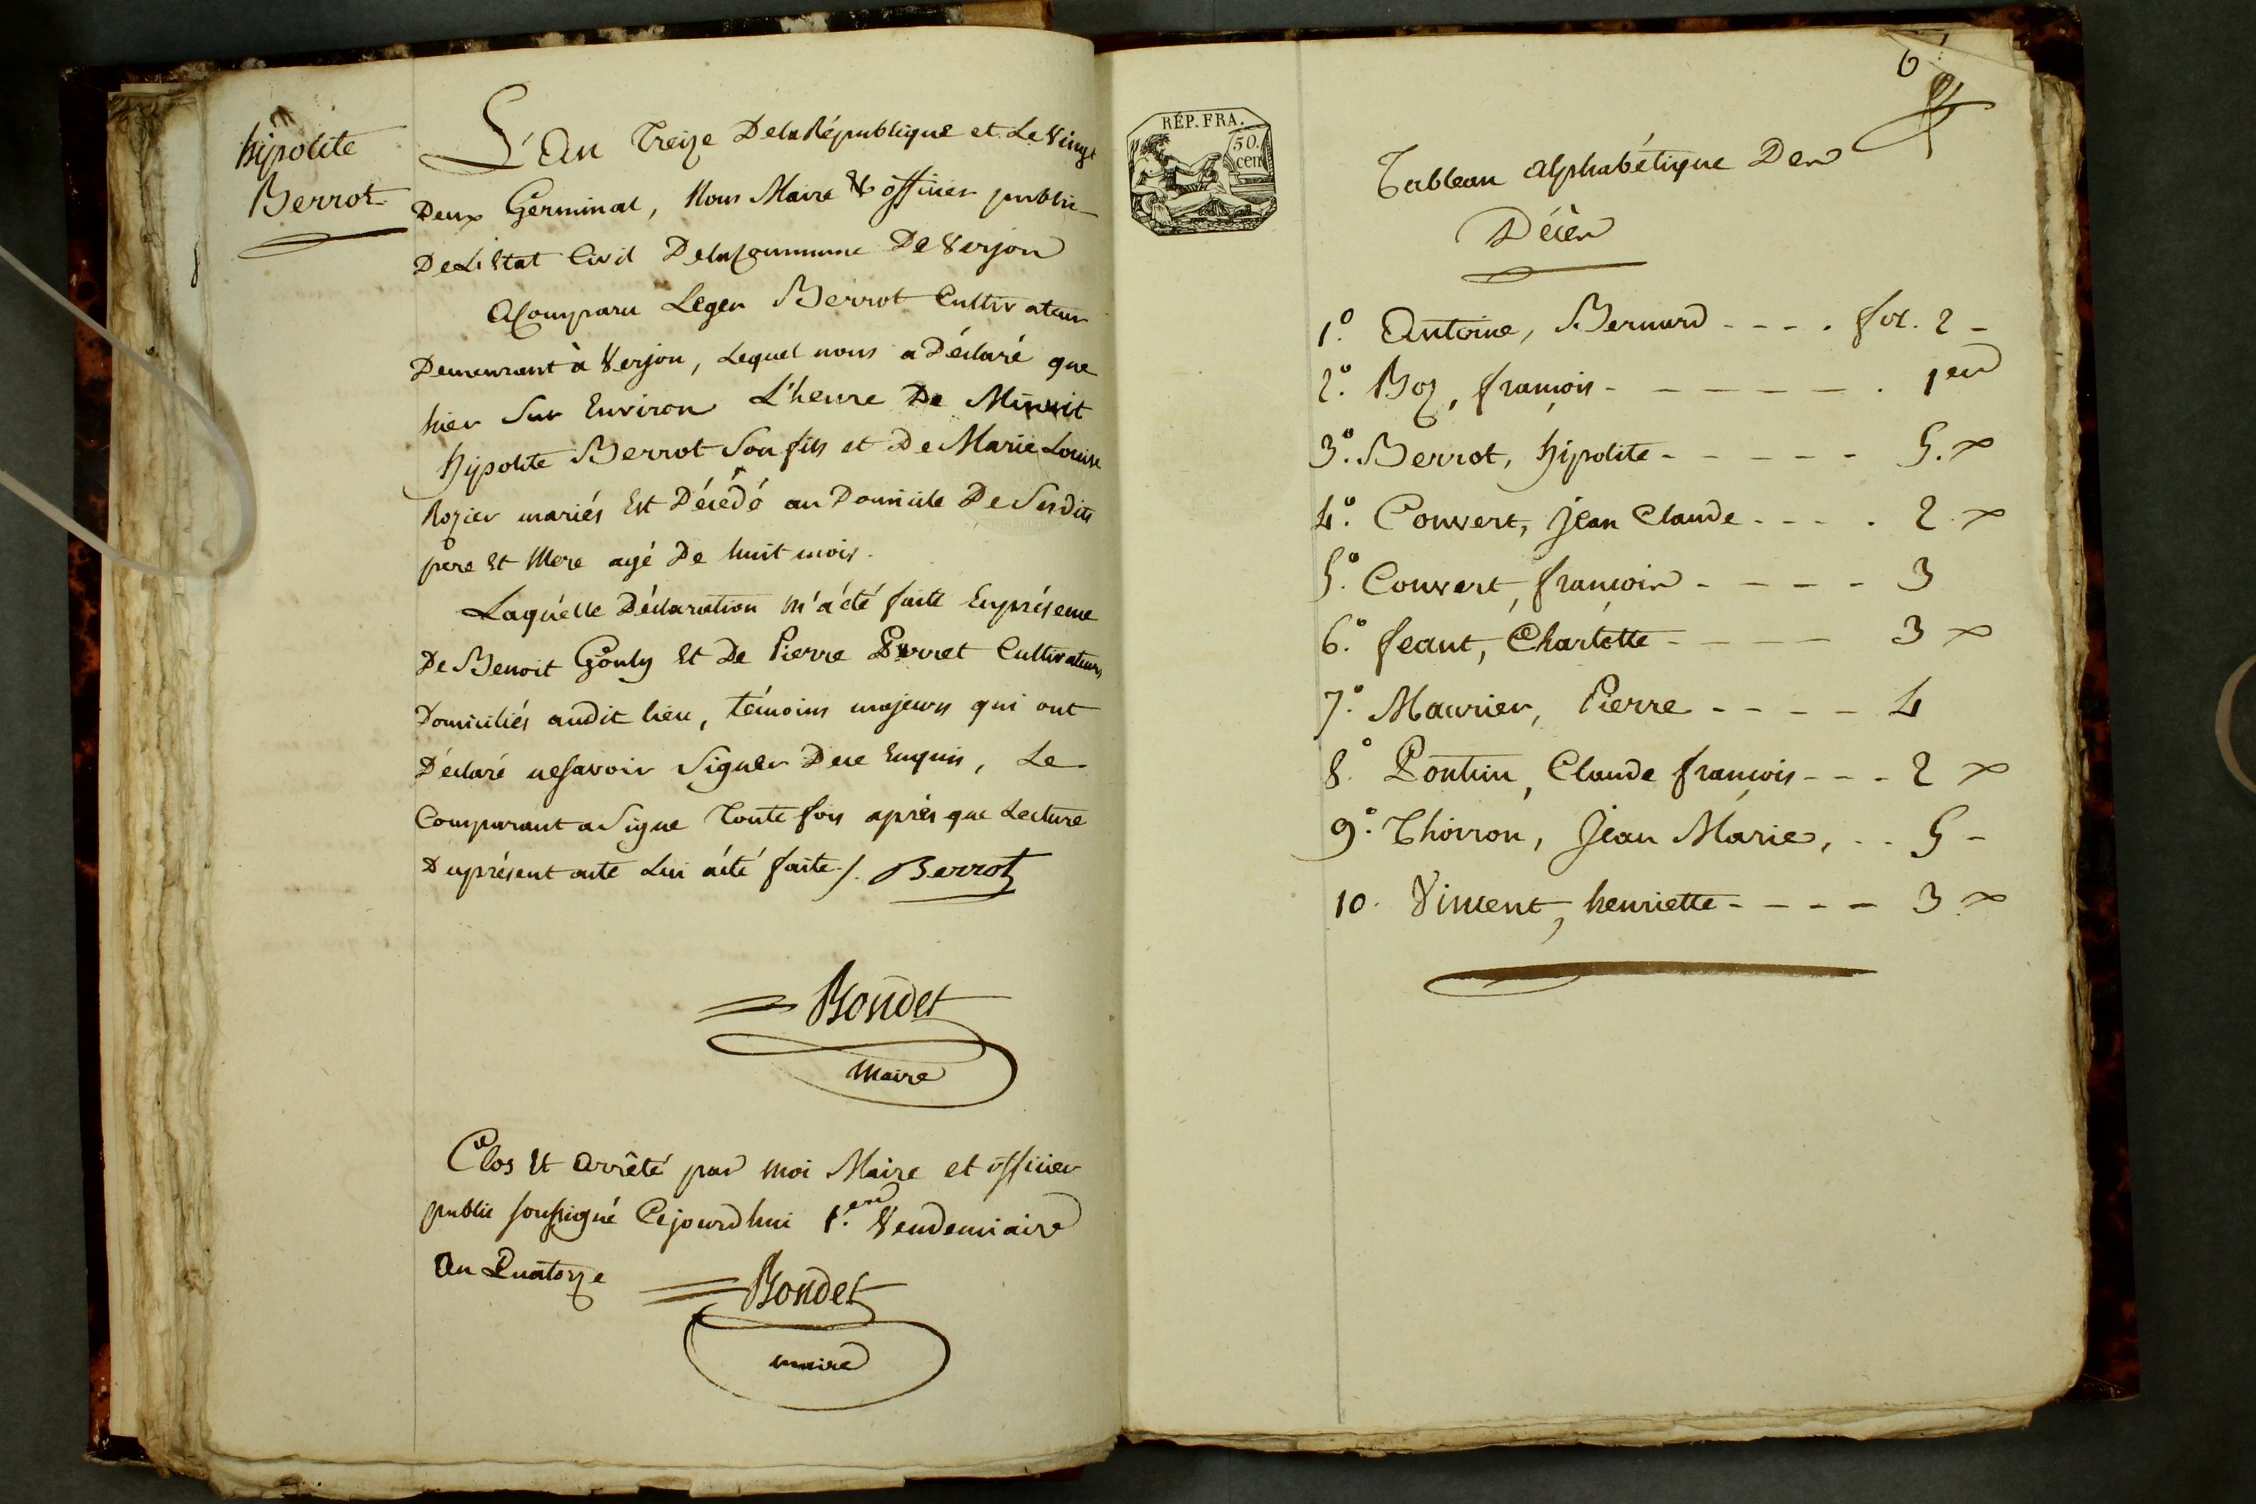 hipolite
Berrot
L'an treize De la République et Le Vingt
Deux Germinal, Nous Maire & officier public
De L'Etat Civil De la Commune De Verjon
a Comparu Leger Berrot Cultivateur
Demeurant à Verjon, Lequel nous a Déclaré que
hier Sur Environ L'heure De Minuit
hipolite Berrot Son fils et De Marie Louise
Rozier mariés Est Décédé au Domicile De Sesdits
père Et Mere agé De huit mois.
Laquelle Déclaration m'a été faite En présence
De Benoit Gouly Et De Pierre Perret Cultivateurs
Domiciliés audit lieu, témoins majeurs qui ont
Déclaré ne savoir Signer De ce Enquis, Le
Comparant a Signe toute fois après que Lecture
Du présent acte Lui a été faite /. Berrot
Bondet
Maire
Clos Et arrêté par moi Maire et officier
public soussigné Cejourdhui 1.er Vendemiaire
an Quatorze
Bondet
maire
RÉP. FRA.
50.
cen
6
Tableau alphabétique Des
Décès
1.° Antoine, Bernard - - - - fol. 2 -
2.° Boz, françois - - - - - - - 1er
3.° Berrot, hipolite - - - - - 5. x
4.° Convert, Jean Claude - - - - 2 x
5.° Convert, françois - - - - 3
6.° feaut, Charlotte - - - - 3 x
7.° Maurier, Pierre - - - - 4
8.° Pontun, Claude françois - - - 2 x
9.° Thoiron, Jean Marie, - - 5 -
10. Vincent, henriette - - - - 3 x